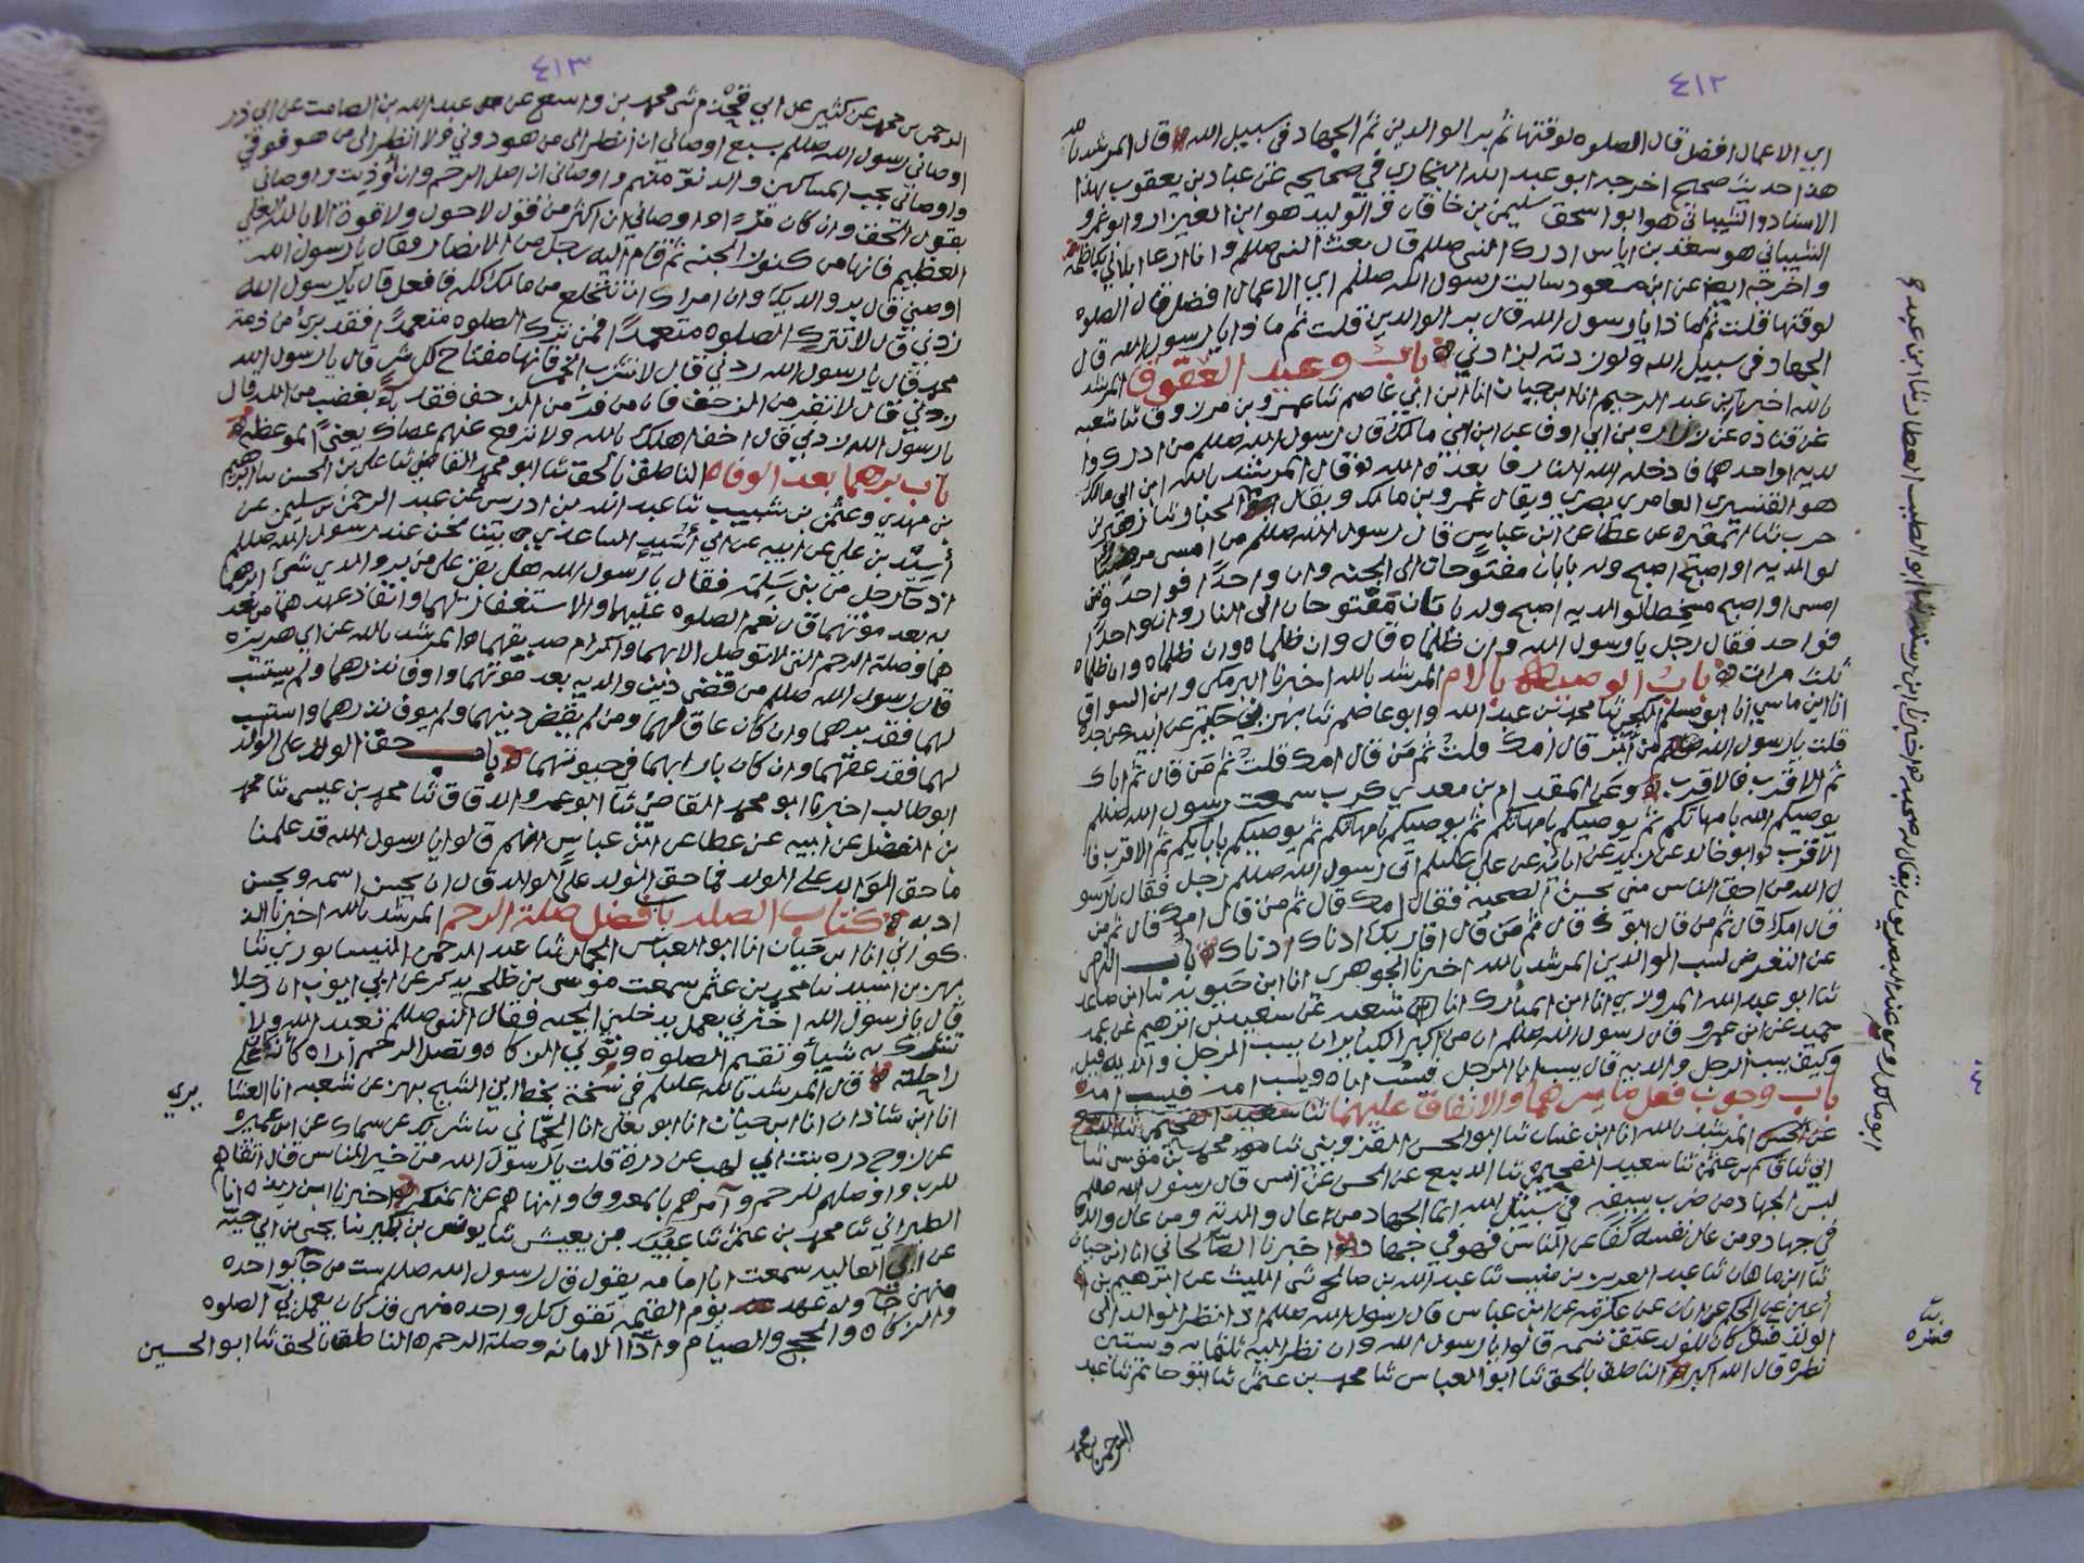 ٤١٢
اي الاعمال افضل قال الصلوه لوقتها ثم بر الوالدين ثم الجهاد في سبيل الله قال المرشد بالله
هذا حديث صحيح اخرجه ابو عبد الله البخاري في صحيحه عن عباد بن يعقوب بهذا
الاسناد والشيباني هو ابو اسحق سليمن بن خاقان والوليد هو ابن العيزار وابو عمرو
الشيباني هو سعد بن اياس ادرك النبي صللم قال بعث النبي صللم وانا ارعا ابلا بكاظمه
واخرجه ايضا عن ابن مسعود سالت رسول الله صللم اي الاعمال افضل قال الصلوه
لوقتها قلت ثم ماذا يا رسول الله قال بر الوالدين قلت ثم ماذا يا رسول الله قال
الجهاد في سبيل الله ولو زدته لزادني باب وعيد العقوق المرشد
بالله اخبرنا ابن عبد الرحيم انا ابن حيان انا ابن ابي عاصم ثنا عمرو بن مرزوق ثنا شعبه
عن قتاده عن زراره بن ابي اوفا عن ابن ابي مالك قال رسول الله صللم من ادرك وا
لديه او احدهما فادخله الله النار فابعده الله قال المرشد بالله ابن ابي مالك
هو القشيري العامري بصري ويقال عمرو بن مالك ويقال
حرب ثنا المغيره عن عطا عن ابن عباس قال رسول الله صللم من امسى مرضيا
لوالديه او اصبح اصبح وله بابان مفتوحان الى الجنه وان واحدا فواحد ومن
امسى او اصبح مسخطا لوالديه اصبح وله بابان مفتوحان الى النار وان واحدا
فواحد فقال رجل يا رسول الله وان ظلماه قال وان ظلماه وان ظلماه وان ظلماه
ثلث مرات باب الوصيه بالام المرشد بالله اخبرنا البرمكي وابن السواق
انا ابن ماسي انا ابو مسلم الكجي ثنا محمد بن عبد الله وابو عاصم ثنا بهز بن حكيم عن ابيه عن جده
قلت يا رسول الله من ابر قال امك قلت ثم من قال امك قلت ثم من قال ثم اباك
ثم الاقرب فالاقرب وعن المقدام بن معدي كرب سمعت رسول الله صللم
يوصيكم الله بامهاتكم ثم يوصيكم بامهاتكم ثم يوصيكم بامهاتكم ثم يوصيكم بابايكم ثم الاقرب فا
الاقرب ابو خالد عن زيد عن ابايه عن علي عليلم اتى رسول الله صللم رجل فقال يا رسو
ل الله من احق الناس مني بحسن الصحبه فقال امك قال ثم من قال امك قال ثم من
قال امك قال ثم من قال ابوك قال ثم من قال اقاربك ادناك ادناك باب
عن التعرض لسب الوالدين المرشد بالله اخبرنا الجوهري انا ابن حيويه ثنا ابن صاعد
ثنا ابو عبد الله المروزي انا ابن المبارك انا شعبه عن سعيد بن ابرهيم عن
حميد عن ابن عمرو قال رسول الله صللم ان من اكبر الكباير ان يسب الرجل والديه قيل
وكيف يسب الرجل والديه قال يسب ابا الرجل فيسب اباه ويسب امه فيسب امه
باب وجوب فعل ما يسرهما والانفاق عليهما
المرشد بالله انا ابن غسان ثنا ابو الحسن القزويني ثنا محمد بن موسى ثنا
ثنا سعيد ثنا الربيع عن الحسن عن انس قال رسول الله صللم
ليس الجهاد من ضرب بسيفه في سبيل الله انما الجهاد من عال والديه ومن عال ولده
في جهاد ومن عال نفسه كفا عن الناس فهو في جهاد اخبرنا الصالحاني انا ابن حيان
ثنا ابن ماهان ثنا عبد العزيز بن منيب ثنا عبد الله بن صالح ثنى الليث عن ابرهيم بن
اعين عن الحكم بن ابان عن عكرمه عن ابن عباس قال رسول الله صللم اذا نظر الوالد الى
الولد كان للولد عتق نسمه قالوا يا رسول الله وان نظر اليه ثلثمايه وستين
نظره قال الله اكبر الناطق بالحق ثنا ابو العباس ثنا محمد بن عثمن ثنا ابو حاتم ثنا عبد
الرحمن بن محمد
٤١٣
الرحمن بن محمد عن كثير عن ابي قحذم ثنى محمد بن واسع عن عبد الله بن الصامت عن ابي ذر
اوصاني رسول الله صللم بسبع اوصاني ان انظر الى من هو دوني ولا انظر الى من هو فوقي
واوصاني بحب المساكين والدنو منهم واوصاني ان اصل الرحم وان اوذيت واوصاني
بقول الحق وان كان مرا واوصاني ان اكثر من قول لا حول ولا قوة الا بالله العلي
العظيم فانها من كنوز الجنه ثم قام اليه رجل من الانصار فقال يا رسول الله
اوصني قال بر والديك وان امراك ان تنخلع من مالك كله فافعل قال يا رسول الله
زدني قال لا تترك الصلوه متعمدا فمن ترك الصلوه متعمدا فقد بري من ذمة
محمد قال يا رسول الله زدني قال لا تشرب الخمر فانها مفتاح كل شر قال يا رسول الله
زدني قال لا تفر من الزحف فان من فر من الزحف فقد باء بغضب من الله قال
يا رسول الله زدني قال اخف اهلك بالله ولا ترفع عنهم عصاك يعني الموعظه
باب برهما بعد الوفاه الناطق بالحق ثنا ابو محمد القاضي ثنا علي بن الحسن ثنا ابرهيم
بن مهدي وعثمن بن شبيب ثنا عبد الله بن ادريس عن عبد الرحمن بن سليمن عن
اسيد بن علي عن ابيه عن ابي اسيد الساعدي بينا نحن عند رسول الله صللم
اذ جا رجل من بني سلمه فقال يا رسول الله هل بقي علي من بر والدي شي ابرهما
به بعد موتهما قال نعم الصلوه عليهما والاستغفار لهما وانفاذ عهدهما من بعد
هما وصلة الرحم التي لا توصل الا بهما واكرام صديقهما المرشد بالله عن ابي هريره
قال رسول الله صللم من قضى دين والديه بعد موتهما واوفا نذرهما ولم يستسب
لهما فقد برهما وان كان عاقا بهما ومن لم يقض دينهما ولم يوف نذرهما واستسب
لهما فقد عقهما وان كان بارا بهما في حيوتهما باب حق الولد على الوالد
ابو طالب اخبرنا ابو محمد القاضي ثنا ابو عمرو الدقاق ثنا محمد بن عيسى ثنا محمد
بن الفضل عن ابيه عن عطا عن ابن عباس انهم قالوا يا رسول الله قد علمنا
ما حق الوالد على الولد فما حق الولد على الوالد قال ان يحسن اسمه ويحسن
ادبه كتاب الصله باب فضل صلة الرحم المرشد بالله اخبرنا الذ
كواني انا ابن حيان انا ابو العباس الجمال ثنا عبد الرحمن النيسابوري ثنا
بهز بن اسد ثنا محمد بن عثمن سمعت موسى بن طلحه يذكر عن ابي ايوب ان رجلا
قال يا رسول الله اخبرني بعمل يدخلني الجنه فقال النبي صللم تعبد الله ولا
تشرك به شيئا وتقيم الصلوه وتوتي الزكاه وتصل الرحم اراه كانه على
راحلته قال المرشد بالله عليلم في نسخة بخط ابن الشيخ بهز عن شعبه انا
انا ابن شاذان انا ابن حيان انا ابو يعلى انا الحماني ثنا شريك عن سماك عن ابن عميره
عن زوج دره بنت ابي لهب عن دره قلت يا رسول الله من خير الناس قال اتقاهم
للرب واوصلهم للرحم وآمرهم بالمعروف وانهاهم عن المنكر اخبرنا ابن ريذه انا
الطبراني ثنا محمد بن عثمن ثنا عبيد بن يعيش ثنا يونس بن بكير ثنا يحيى بن ابي حيه
عن ابي العاليه سمعت ابا امامه يقول قال رسول الله صللم ست من جا بواحده
منهن جا وله عهد يوم القيمه تقول كل واحده منهن قد كان يعمل بي الصلوه
والزكاه والحج والصيام واداا الامانه وصلة الرحم الناطق بالحق ثنا ابو الحسين